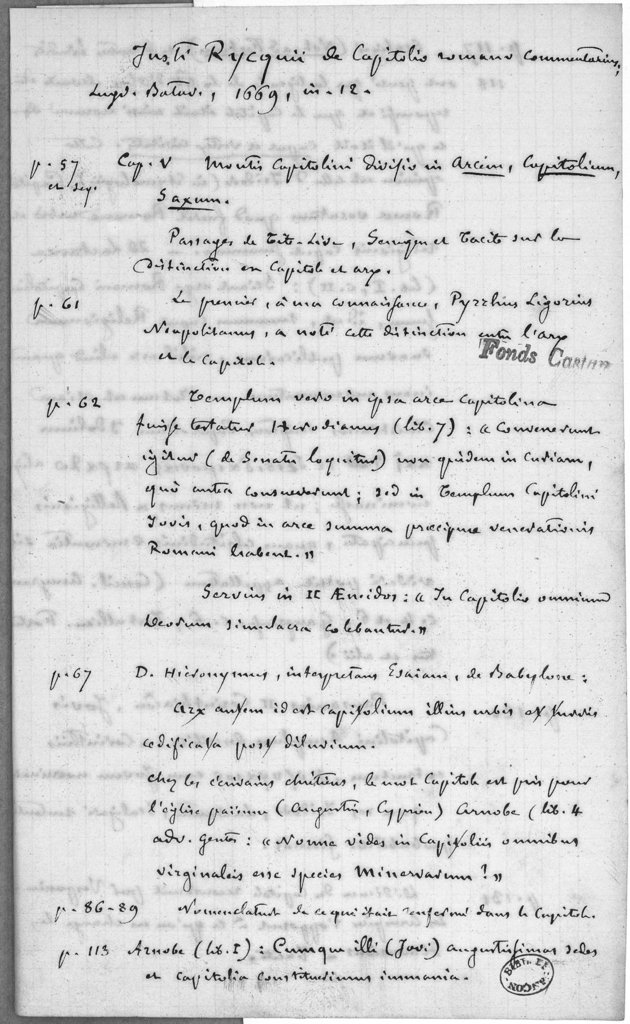 Justi Rycquii de Capitolio romano commentarius,
Lugd. Batav., 1669, in-12.
p. 57 Cap. V Montis Capitolini divisio in Arcem, Capitolium,
et seq. Saxum.
Passages de Tite-Live, Servius et Tacite sur la
distinction en Capitole et arx.
p. 61 Le premier, à ma connaissance, Pyrrhus Ligorius
Neapolitanus, a noté cette distinction entre l'arx
et le Capitole.
Fonds Castan
p. 62 Templum vero in ipsa arce Capitolina
fuisse testatur Herodianus (lib. 7) : « Convenerunt
igitur (de Senatu loquitur) non quidem in Curiam,
quo antea consueverunt ; sed in Templum Capitolini
Jovis, quod in arce summa præcipuæ venerationis
Romani habent. »
Servius in II Æneidos : « In Capitolio omnium
Deorum simulacra colebantur. »
p. 67 D. Hieronymus, interpretans Esaiam, de Babylone :
Arx autem id est Capitolium illius urbis est turris
ædificata post diluvium.
Chez les écrivains chrétiens, le mot Capitole est pris pour
l'église païenne (Augustin, Cyprien) Arnobe (lib. 4
adv. gentes : « Nonne vides in Capitoliis omnibus
virginaleis esse species Minervarum ? »
p. 86-89 Nomenclature de ce qui était renfermé dans le Capitole.
p. 113 Arnobe (lib. I) : Cumque illi (Jovi) augustissimas sedes
et Capitolia constituerimus immania.